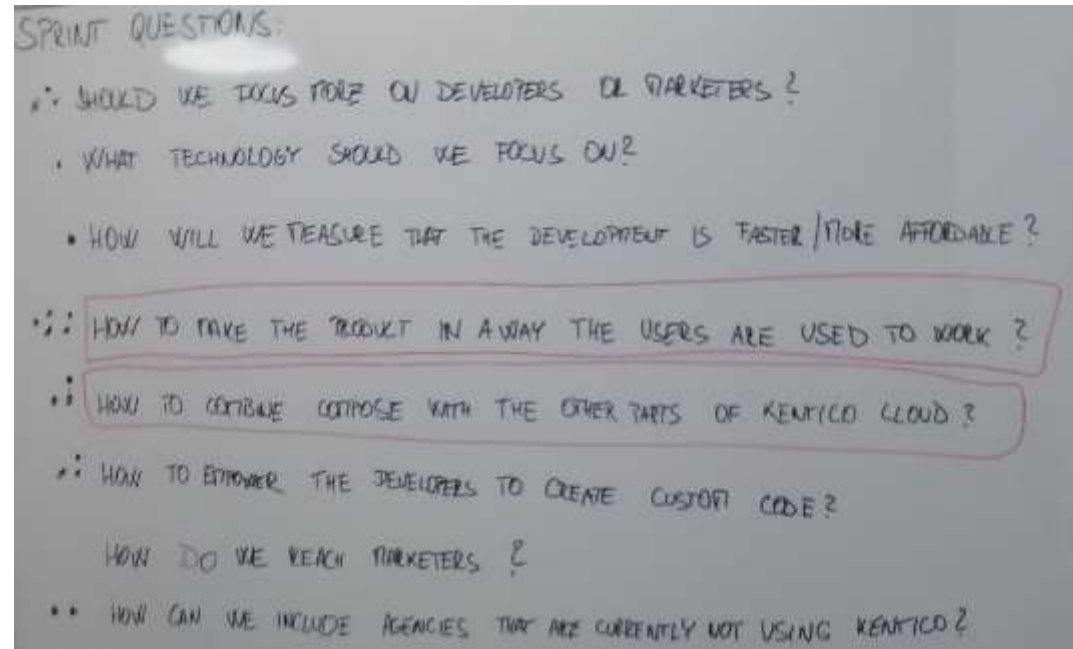 SPRINT QUESTIONS:
SHOULD WE FOCUS MORE ON DEVELOPERS OR MARKETERS?
WHAT TECHNOLOGY SHOULD WE FOCUS ON?
HOW WILL WE MEASURE THAT THE DEVELOPMENT IS FASTER/MORE AFFORDABLE?
HOW TO MAKE THE PRODUCT IN A WAY THE USERS ARE USED TO WORK?
HOW TO COMBINE COMPOSE WITH THE OTHER PARTS OF KENTICO CLOUD?
HOW TO EMPOWER THE DEVELOPERS TO CREATE CUSTOM CODE?
HOW DO WE REACH MARKETERS?
HOW CAN WE INCLUDE AGENCIES THAT ARE CURRENTLY NOT USING KENTICO?